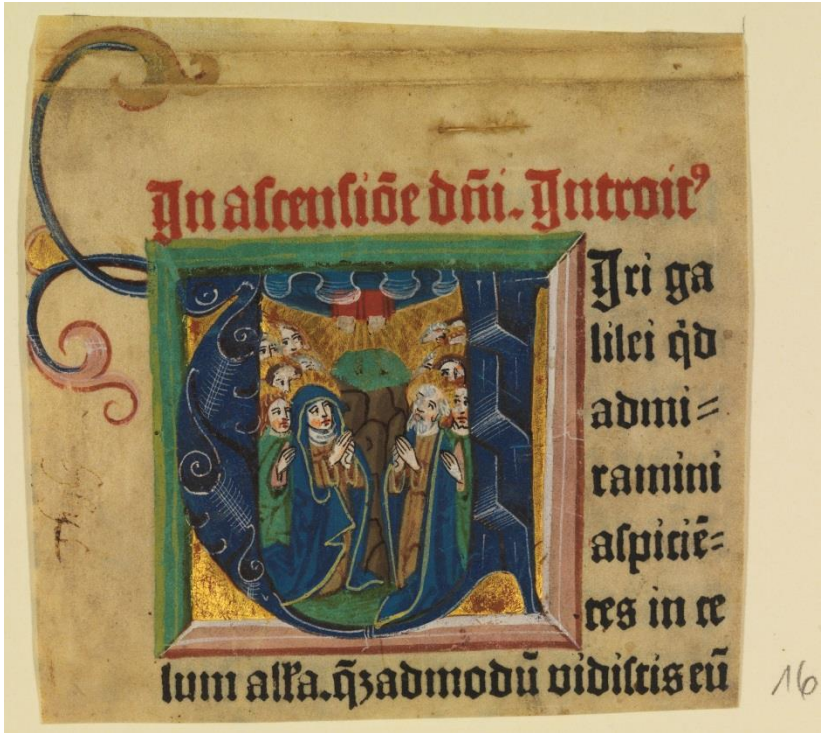 In ascensiōe dn̄i. Introitꝰ
Iri ga
lilei qd̄
admi=
ramini
aspiciē=
tes in ce
lum alla. q̄zadmodū vidistis eū
16